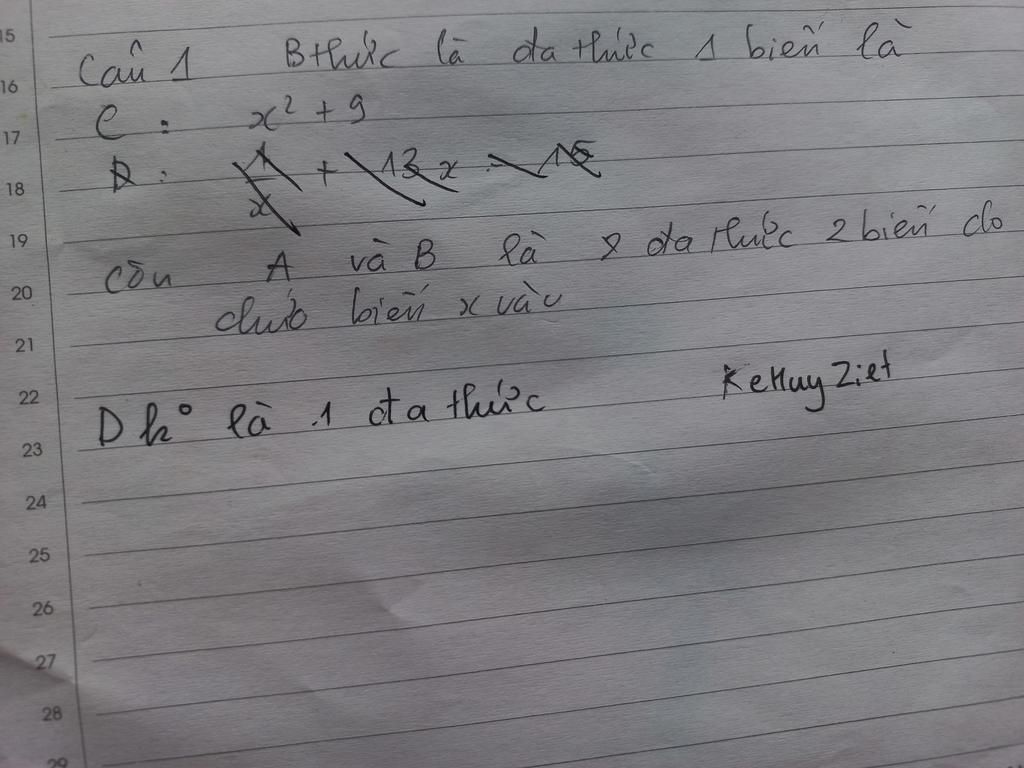 15
16 Câu 1 Bthức là đa thức 1 biến là
17 C : x² + 9
18 D : 1/x + 13x - 15
19
20 còn A và B là 2 đa thức 2 biến do
21 chứa biến x và
22 KeHuyZiet
23 D k° là 1 đa thức
24
25
26
27
28
29